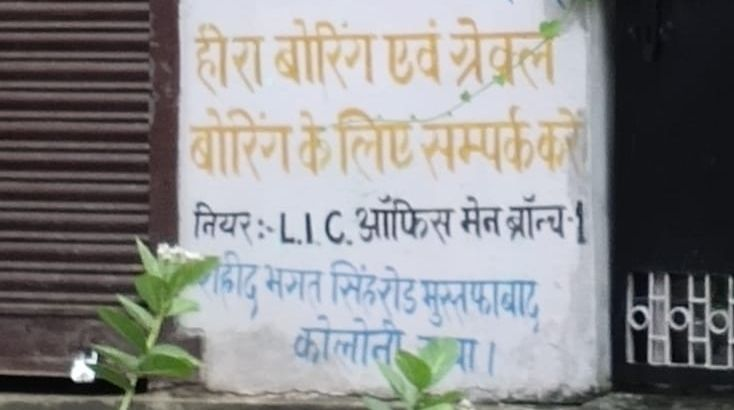 हीरा बोरिंग एवं ग्रेवल
बोरिंग के लिए सम्पर्क करें
नियर:- L.I.C. ऑफिस मेन ब्रॉन्च-1
भगत सिंह रोड मुस्तफाबाद
कोलोनी